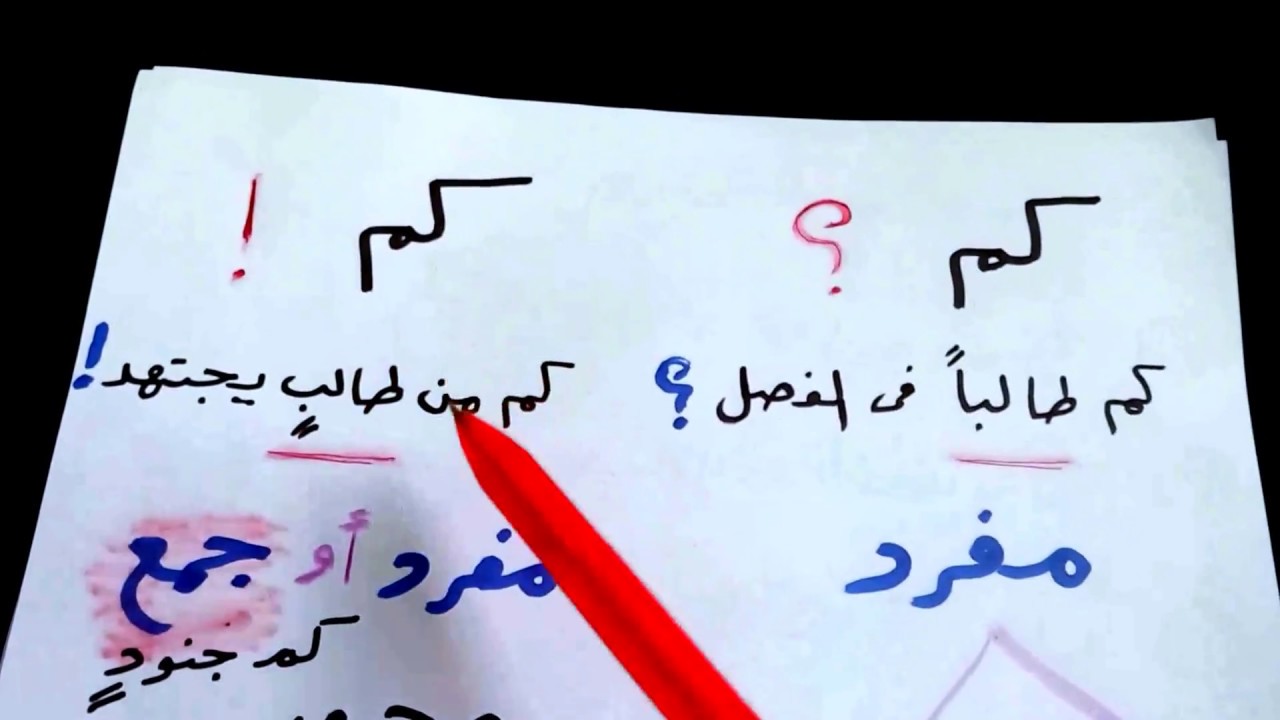 كم ؟
كم !
كم طالباً فى الفصل ؟
كم من طالبٍ يجتهد !
مفرد
مفرد أو جمع
كم جنودٍ